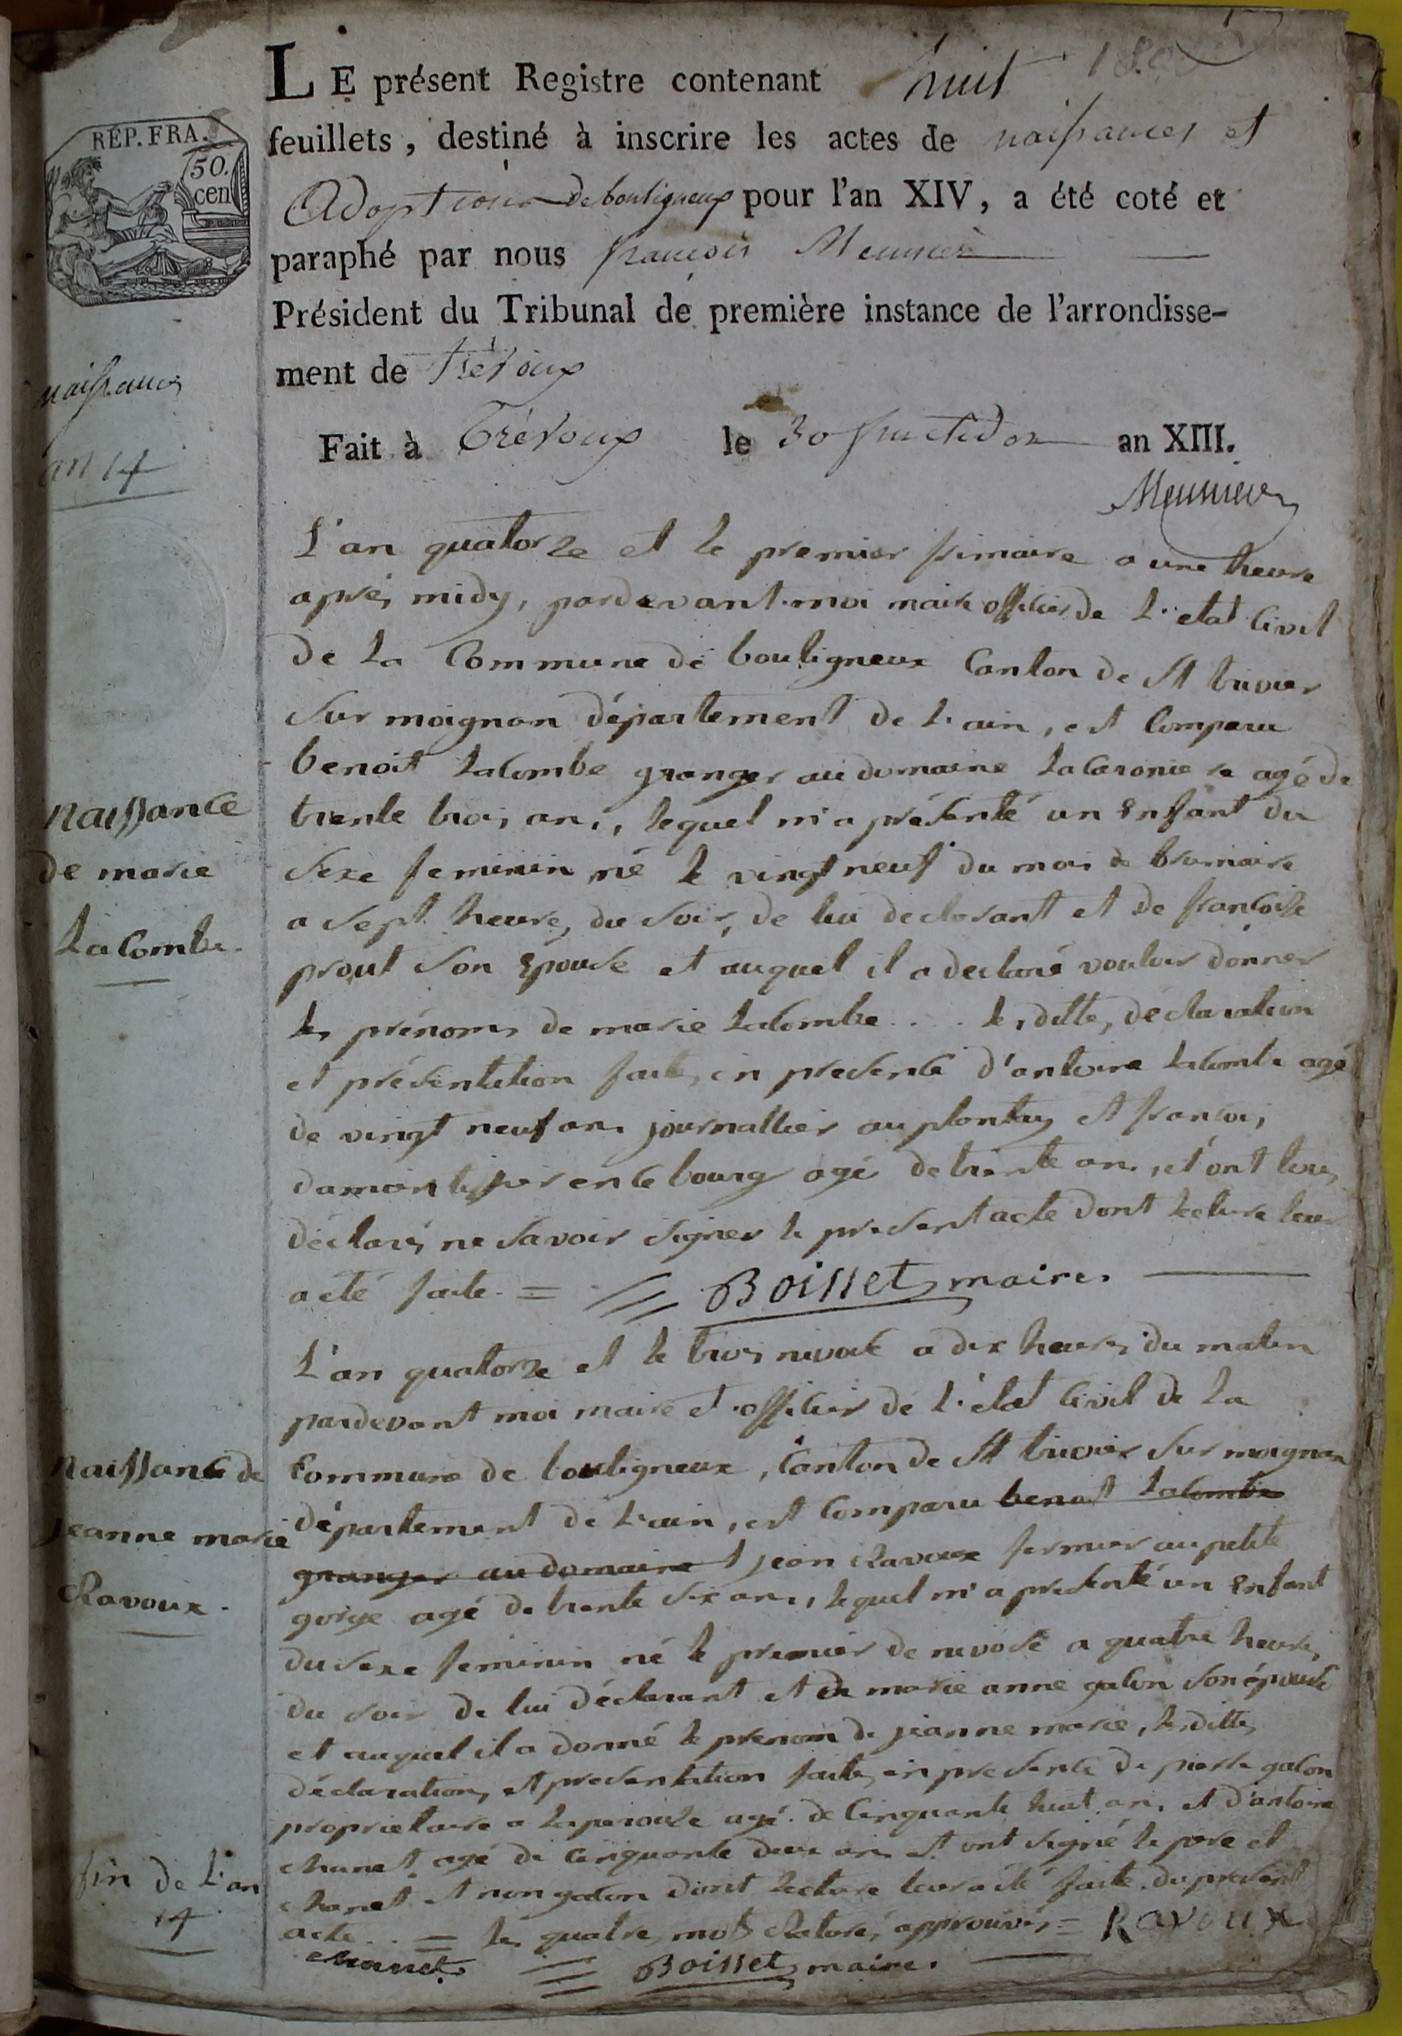 LE présent Registre contenant huit
feuillets, destiné à inscrire les actes de naissances et
Adoptions de bouligneux pour l'an XIV, a été coté et
paraphé par nous françois Meunier
Président du Tribunal de première instance de l'arrondisse-
ment de trévoux
Fait à Trévoux le 30 fructidor an XIII.
Meunier
RÉP. FRA.
50.
cen
naissances
an 14
L'an quatorze et le premier frimaire a une heure
après midy, pardevant moi maire officier de L'etat Civil
de La Commune de bouligneux Canton de St trivier
sur moignan département de L'ain, est Comparu
benoit LaCombe granger au domaine agé de
trente trois ans, lequel m'a présenté un Enfant du
Sexe feminin né le vingt neuf du mois de brumaire
a sept heures du soir, de lui declarant et de francoise
prout son Epouse et auquel il a declaré vouloir donner
les prénoms de marie LaCombe . . . lesdittes déclaration
et présentation faites en presence d'antoine LaCombe agé
de vingt neuf ans journallier au plantay et francois
en ce bourg agé de trente ans, et ont tous
déclarés ne savoir signer le present acte dont lecture leur
a été faite. = Boisset maire.
naissance
de marie
LaCombe.
L'an quatorze et le trois nivose a dix heures du matin
pardevant moi maire et officier de L'état Civil de La
Commune de bouligneux, Canton de St trivier sur moignan
département de L'ain, est Comparu benoit LaCombe
granger au domaine jean Ravoux fermier au petit
gorge agé de trente six ans, lequel m'a presenté un Enfant
du sexe feminin né le premier de nivose a quatre heures
du soir de lui déclarant et de marie anne galon son épouse
et auquel il a donné le prenom de jeanne marie, lesdittes
déclaration et presentation faites en presence de pierre galon
proprietaire a laperouze agé de Cinquante huit ans et d'antoine
chanet agé de Cinquante deux ans et ont signé le pere et
chanet et non galon dont lecture leur a été faite du present
acte . . = les quatre mots Raturés approuvés = Ravoux
chanet Boisset maire.
naissance de
jeanne marie
Ravoux.
fin de L'an
14